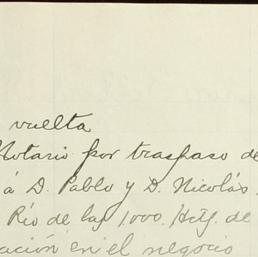 vuelta
Notario por traspaso de
á D. Pablo y D. Nicolás
Rio de las 1,000. Hctg. de
ación en el negocio